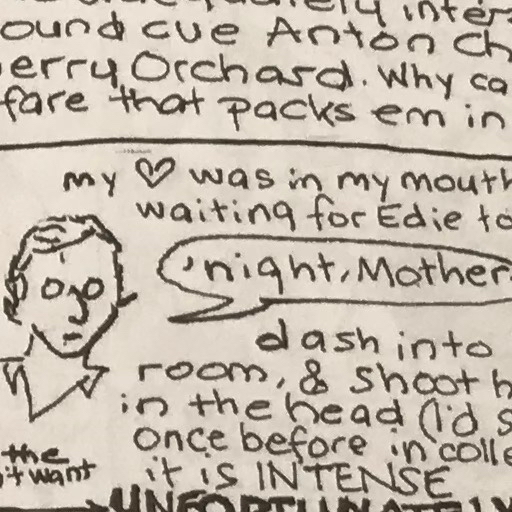 ound cue Anton Ch
erry Orchard. Why ca
fare that packs em in
my ♡ was in my mouth
waiting for Edie to
'night, Mother
dash into
room, & shoot h
in the head (I'd s
once before in colle
the
it want
it is INTENSE
UNFORTUNATELY